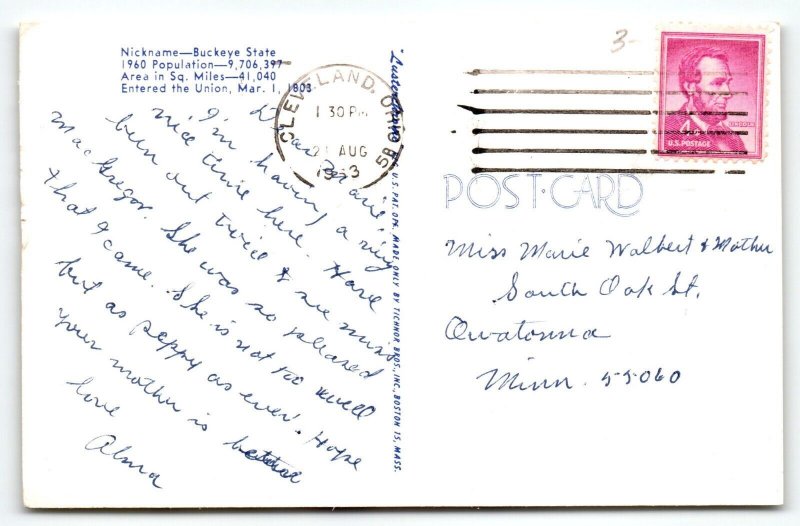 Nickname—Buckeye State
1960 Population—9,706,397
Area in Sq. Miles—41,040
Entered the Union, Mar. 1, 1803
Dear Marie
I'm having a very
nice time here. Have
been out twice to see Miss
MacGregor. She was so pleased
that I came. She is not too well
but as peppy as ever. Hope
your mother is better
love
Alma
CLEVELAND, OHIO
1 30 PM
AUG
1963
5B
U. S. PAT. OFF. MADE ONLY BY TICHNOR BROS., INC., BOSTON 15, MASS.
3-
LINCOLN
U.S. POSTAGE
POST-CARD
Miss Marie Walbert & Mother
South Oak St.
Owatonna
Minn. 55060